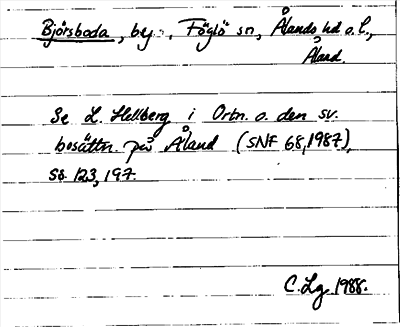 Björsboda, by, Föglö sn, Ålands hd o. l.,
Åland.
Se L. Hellberg i Ortn. o. den sv.
besättn. på Åland (SNF 68, 1987),
ss. 123, 197.
C. Lg 1988.